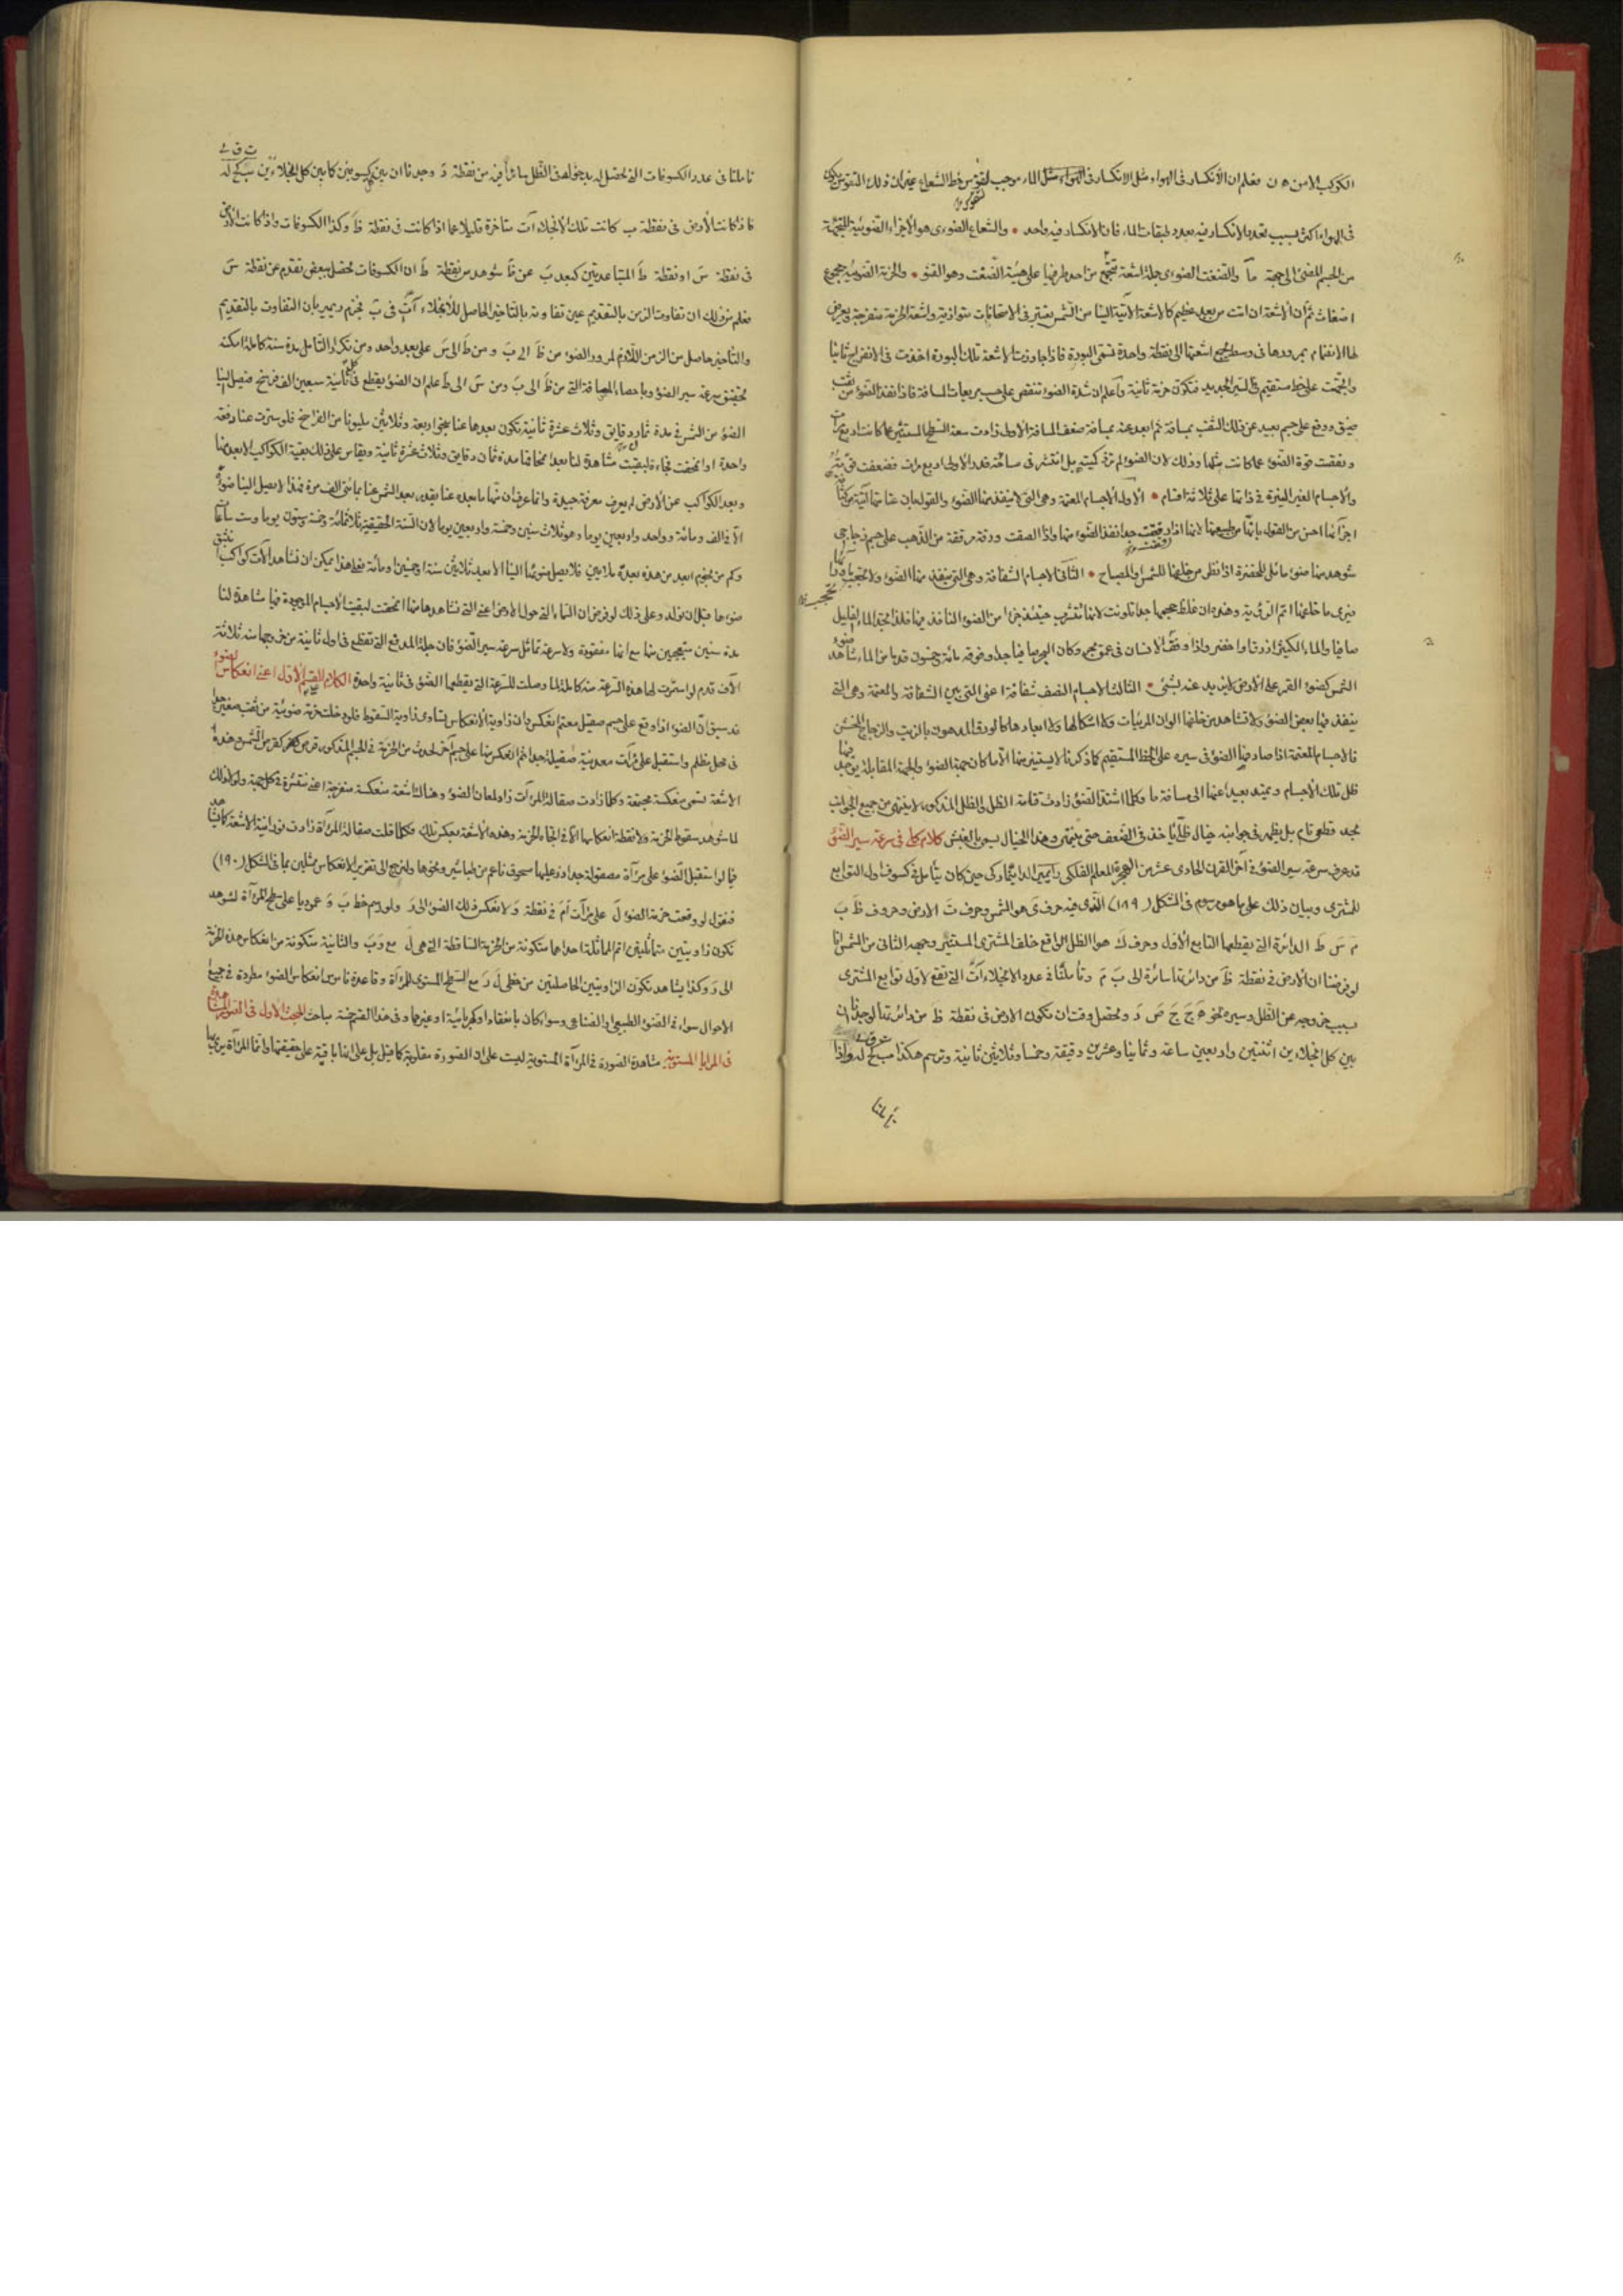 الكوكب الامن ه ن فعلم ان الانكسار فى الهواء مثل الانكسار فى الماء موجب لتقوس خط الشعاع غير ان ذلك التقوس يكون
فى الهواء اكثر بسبب تعدد الانكسار فيه بعدد طبقات الماء فان الانكسار فيه واحد * والشعاع الضوءى هو الاجزاء الضوئية المتجهة
من الجسم المضئ الى جهة ما والضغث الضوءى جملة اشعة تجتمع من احد طرفيها على هيئة الضغث وهو القنو * والحزمة الضوئية مجموع
اضغاث ثم ان الاشعة ان اتت من بعد عظيم كالاشعة الآتية الينا من الشمس تعتبر فى الامتحانات متوازية واشعة الحزمة منفرجة ويعرض
لها الانضمام بمرورها فى وسط يجمع اشعتها الى نقطة واحدة تسمى البورة فاذا جاوزت الاشعة تلك البورة اخذت فى الانفراج ثانيا
واتجهت على خط مستقيم فى السير الجديد فتكون حزمة ثانية واعلم ان شدة الضوء تنقص على حسب مربعات المسافة فاذا نفذ الضوء من ثقب
ضيق ووقع على جسم بعيد عن ذلك الثقب بمسافة ثم ابعد عنه بمسافة ضعف المسافة الاولى زادت سعة السطح المستنير عما كانت اربع مرات
ونقصت قوة الضوء عما كانت مثلها وذلك لان الضوء لم تزد كميته بل انتشر فى مساحة قدر الاولى اربع مرات فضعفت قوته
والاجسام الغير النيرة فى ذاتها على ثلاثة اقسام * الاول الاجسام المعتمة وهى التى لا ينفذ منها الضوء والقول بان عتامتها آتية من كثافة
اجزائها احسن من القول بانها من طبيعتها لانها اذا رققت جدا نفذ الضوء منها واذا الصقت ورقة مرققة من الذهب على جسم زجاجى
شوهد منها ضوء مائل للخضرة اذا نظر من خلفها للشمس او المصباح * الثانى الاجسام الشفافة وهى التى ينفذ منها الضوء ولا تحجب
فيرى ما خلفها اتم الرؤية وهذه ان غلظ حجمها جدا تلونت لانها تتشرب حينئذ جزءا من الضوء النافذ فيها فلذا نجد الماء القليل
صافيا والماء الكثير ازرق او اخضر واذا وقف الانسان فى عمق بحر وكان البحر صافيا جدا وفوقه مائة وخمسون قدما من الماء شاهد ضوء
الشمس كضوء القمر على الارض لم يزيد عنه بشئ * الثالث الاجسام النصف شفافة اعنى التى بين الشفافة والمعتمة وهى التى
ينفذ فيها بعض الضوء ولا تشاهد من خلفها الوان المرئيات ولا اشكالها ولا ابعادها كالورق المدهون بالزيت والزجاج الخشن
فالاجسام المعتمة اذا صادفها الضوء فى سيره على الخط المستقيم كما ذكرنا لا يستنير منها الا ما كان جهة الضوء والجهة المقابلة يوجد فيها
ظل تلك الاجسام ويمتد بعيدا عنها الى مسافة ما وكلما اشتد الضوء زادت قتامة الظل والظل المذكور لا ينتهى من جميع الجوانب
بحد قطعى تام بل يظهر فى جوانبه خيال ظلى ياخذ فى الضعف حتى ينتهى وهذا الخيال يسمى بالغبش كلام كلى فى سرعة سير الضوء
قد عرف سرعة سير الضوء فى آخر القرن الحادى عشر من الهجرة المعلم الفلكى رايمير الدانيماركى حين كان يتأمل فى كسوف اول التوابع
للمشترى وبيان ذلك على ما هو مرسوم فى الشكل (١٨٩) الذى فيه حرف ى هو الشمس وحرف ت الارض وحروف ظ ب
م س ط الدائرة التى يقطعها التابع الاول وحرف ك هو الظل الواقع خلف المشترى المستنير وجهه الثانى من الشمس فانا
لو فرضنا ان الارض فى نقطة ظ من دائرتها سائرة الى ب م وتأملنا فى عدد الانجلاءات التى تقع لاول توابع المشترى
بسبب خروجه عن الظل وسيره نحو ه ج ح ص د وتحصل وقت ان تكون الارض فى نقطة ظ من دائرتها لوجدنا ان
بين كل انجلاءين اثنتين واربعين ساعة وثمانيا وعشرين دقيقة وخمسا وثلاثين ثانية وترسم هكذا مب كح له واذا
تاملنا
تاملنا فى عدد الكسوفات التى تحصل له بدخوله فى الظل سائرا فيه من نقطة د وجدنا ان بين كل كسوفين كما بين كل انجلاءين مب كح له
فاذا كانت الارض فى نقطة ب كانت تلك الانجلاءات متأخرة قليلا عما اذا كانت فى نقطة ظ وكذا الكسوفات واذا كانت الارض
فى نقطة س او نقطة ط المتباعدتين كبعد ب عن ظ شوهد من نقطة ط ان الكسوفات تحصل ببعض تقدم عن نقطة س
فعلم من ذلك ان تفاوت الزمن بالتقديم عين تفاوته بالتاخير الحاصل للانجلاءات فى ب فجزم رايمير بان التفاوت بالتقديم
والتاخير حاصل من الزمن اللازم لمرور الضوء من ظ الى ب ومن ط الى س على بعد واحد ومن تكرار التامل مدة سنة كاملة امكنه
تحقيق سرعة سير الضوء وباحصاء المسافة التى من ظ الى ب ومن س الى ط علم ان الضوء يقطع فى كل ثانية سبعين الف فرسخ فيصل الينا
الضوء من الشمس فى مدة ثمان دقايق وثلاث عشرة ثانية فيكون بعدها عنا نحو اربعة وثلاثين مليونا من الفراسخ فلو سترت عنا دفعة
واحدة او انمحقت فجاءة لبقيت مشاهدة لنا بعد امحاقها مدة ثمان دقايق وثلاث عشرة ثانية ويقاس على ذلك بقية الكواكب لا بعد منها
وبعد الكواكب عن الارض لم يعرف معرفة جيدة وانما عرف ان منها ما بعده عنا بقدر بعد الشمس عنا بمائتى الف مرة فهذا لا يصل الينا ضوؤه
الا فى الف ومائة وواحد واربعين يوما وهو ثلاث سنين وخمسة واربعين يوما لان السنة الحقيقية ثلاثمائة وخمسة وستون يوما وست ساعات
وكم من نجوم ابعد من هذه بعدة ملايين فلا يصل ضوءها الينا الا بعد ثلاثين سنة او خمسين او مائة فعلى هذا يمكن ان نشاهد الآن كواكب نشق
ضوءها قبل ان نولد وعلى ذلك لو فرض ان السماء التى حول الارض اعنى التى نشاهدها منها انمحقت لبقيت الاجسام الموجودة فيها مشاهدة لنا
مدة سنين متعجبين منها مع انها مفقودة ولا سرعة تماثل سرعة سير الضوء فان جلة المدفع التى تقطع فى اول ثانية من خروجها منه ثلاثة
آلاف قدم لو استمرت لها هذه السرعة سنة كاملة لما وصلت للسرعة التى يقطعها الضوء فى ثانية واحدة الكلام على القسم الاول اعنى انعكاس الضوء
قد سبق ان الضوء اذا وقع على جسم صقيل معتم انعكس وان زاوية الانعكاس تساوى زاوية السقوط فلو دخلت حزمة ضوئية من ثقب صغير جدا
فى محل مظلم واستقبل على مرآت معدنية صقيلة جدا ثم انعكس منها على جسم آخر لحدث من الحزمة فى الجسم المذكور قرص كقرص الشمس وهذه
الاشعة تسمى منعكسة مجتمعة وكلما زادت صقالة المرآت زاد لمعان الضوء وهناك اشعة منعكسة منفرجة اعنى منتشرة فى كل جهة ولولا ذلك
لما شوهد سقوط الحزمة ولا نقطة انعكاسها الا فى اتجاه الحزمة وهذه الاشعة بعكس تلك فكلما قلت صقالة المرآة زادت نورانية الاشعة كما يشاهد
فيما لو استقبل الضوء على مرآة مصقولة جدا ذر عليها مسحوق ناعم من طباشير ونحوها ولنرجع الى تقرير الانعكاس ممثلين بما فى الشكل (١٩٠)
فنقول لو وقعت حزمة الضوء ل على مرآت ام فى نقطة و لانعكس ذلك الضوء الى د ولو رسم خط ب و عموديا على سطح المرآة لشوهد
تكون زاويتين متماثلتين اتم المماثلة احداهما متكونة من الحزمة الساقطة التى هى ل مع و ب والثانية متكونة من انعكاس هذه الحزمة
الى د وكذا يشاهد تكون الزاويتين الحاصلتين من خطى ل د مع السطح المستوى للمرآة وقاعدة ناموس انعكاس الضوء مطردة فى جميع
الاحوال سواء فى الضوء الطبيعى او الصناعى وسواء كان باتقاد او كهربائية او غيرهما وفى هذا القسم خمسة مباحث المبحث الاول فى الصور المشاهدة
فى المرايا المستوية مشاهدة الصورة فى المرآة المستوية ليست على ان الصورة مقلوبة كما قيل بل على انها باقية على حقيقتها واما المرآة يرى بها